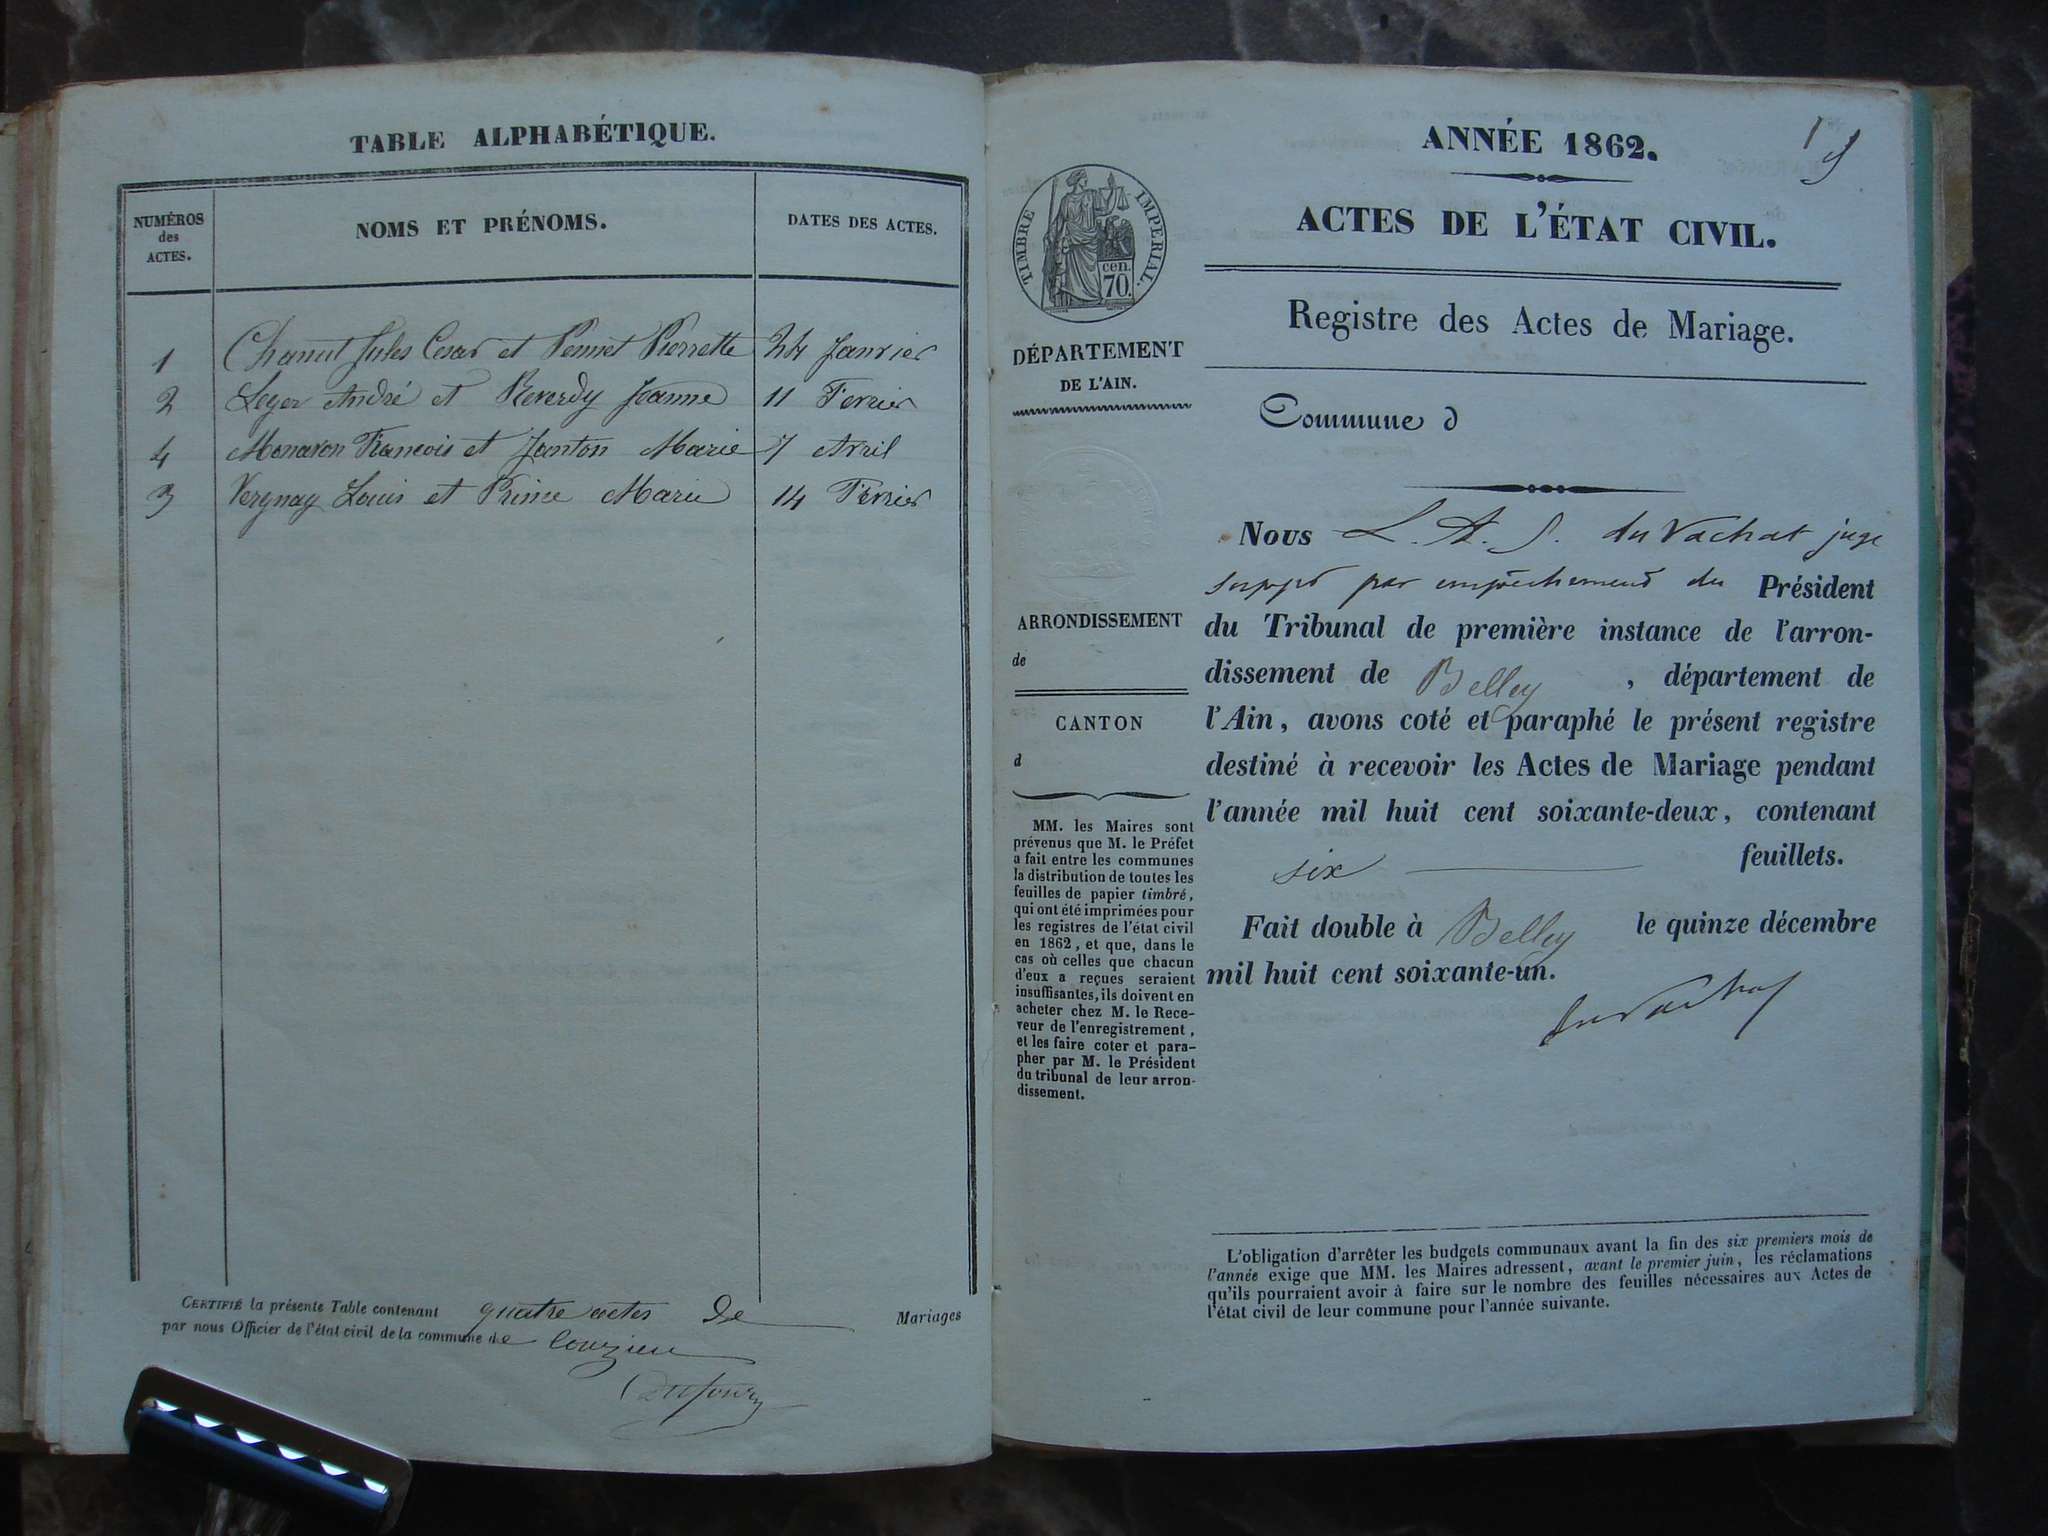 TABLE ALPHABÉTIQUE.
NUMÉROS des ACTES.
NOMS ET PRÉNOMS.
DATES DES ACTES.
1 Chanut Jules Cesar et Pennet Pierrette 24 Janvier
2 Leger André et Reverdy Jeanne 11 Fevrier
4 Monavon Francois et Janton Marie 7 Avril
3 Vergnay Louis et Prince Marie 14 Fevrier
CERTIFIÉ la présente Table contenant quatre actes de Mariages
par nous Officier de l'état civil de la commune de Couzieu
Dufour
1
ANNÉE 1862.
ACTES DE L'ÉTAT CIVIL.
Registre des Actes de Mariage.
TIMBRE IMPERIAL.
cen.
70.
DÉPARTEMENT
DE L'AIN.
Commune d
ARRONDISSEMENT
de
CANTON
d
MM. les Maires sont
prévenus que M. le Préfet
a fait entre les communes
la distribution de toutes les
feuilles de papier timbré,
qui ont été imprimées pour
les registres de l'état civil
en 1862, et que, dans le
cas où celles que chacun
d'eux a reçues seraient
insuffisantes, ils doivent en
acheter chez M. le Rece-
veur de l'enregistrement,
et les faire coter et para-
pher par M. le Président
du tribunal de leur arron-
dissement.
Nous L. A. S. du Vachat juge
suppt par empêchement du Président
du Tribunal de première instance de l'arron-
dissement de Belley, département de
l'Ain, avons coté et paraphé le présent registre
destiné à recevoir les Actes de Mariage pendant
l'année mil huit cent soixante-deux, contenant
six feuillets.
Fait double à Belley le quinze décembre
mil huit cent soixante-un.
du Vachat
L'obligation d'arrêter les budgets communaux avant la fin des six premiers mois de
l'année exige que MM. les Maires adressent, avant le premier juin, les réclamations
qu'ils pourraient avoir à faire sur le nombre des feuilles nécessaires aux Actes de
l'état civil de leur commune pour l'année suivante.